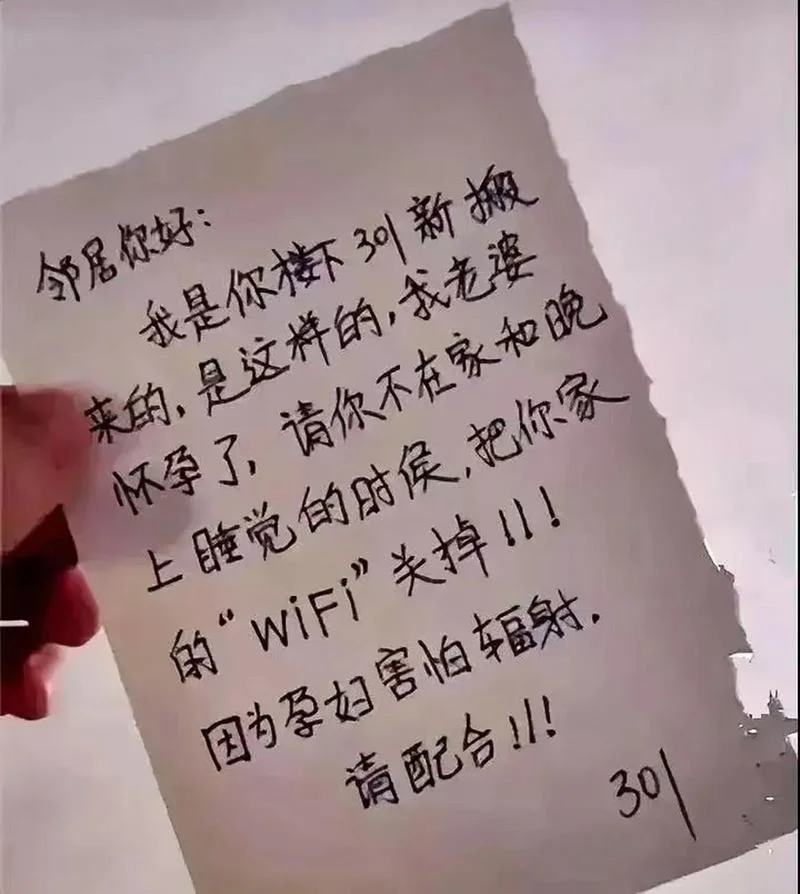 邻居你好：
我是你楼下301新搬
来的，是这样的，我老婆
怀孕了，请你不在家和晚
上睡觉的时候，把你家
的“WiFi”关掉！！！
因为孕妇害怕辐射．
请配合！！！
301